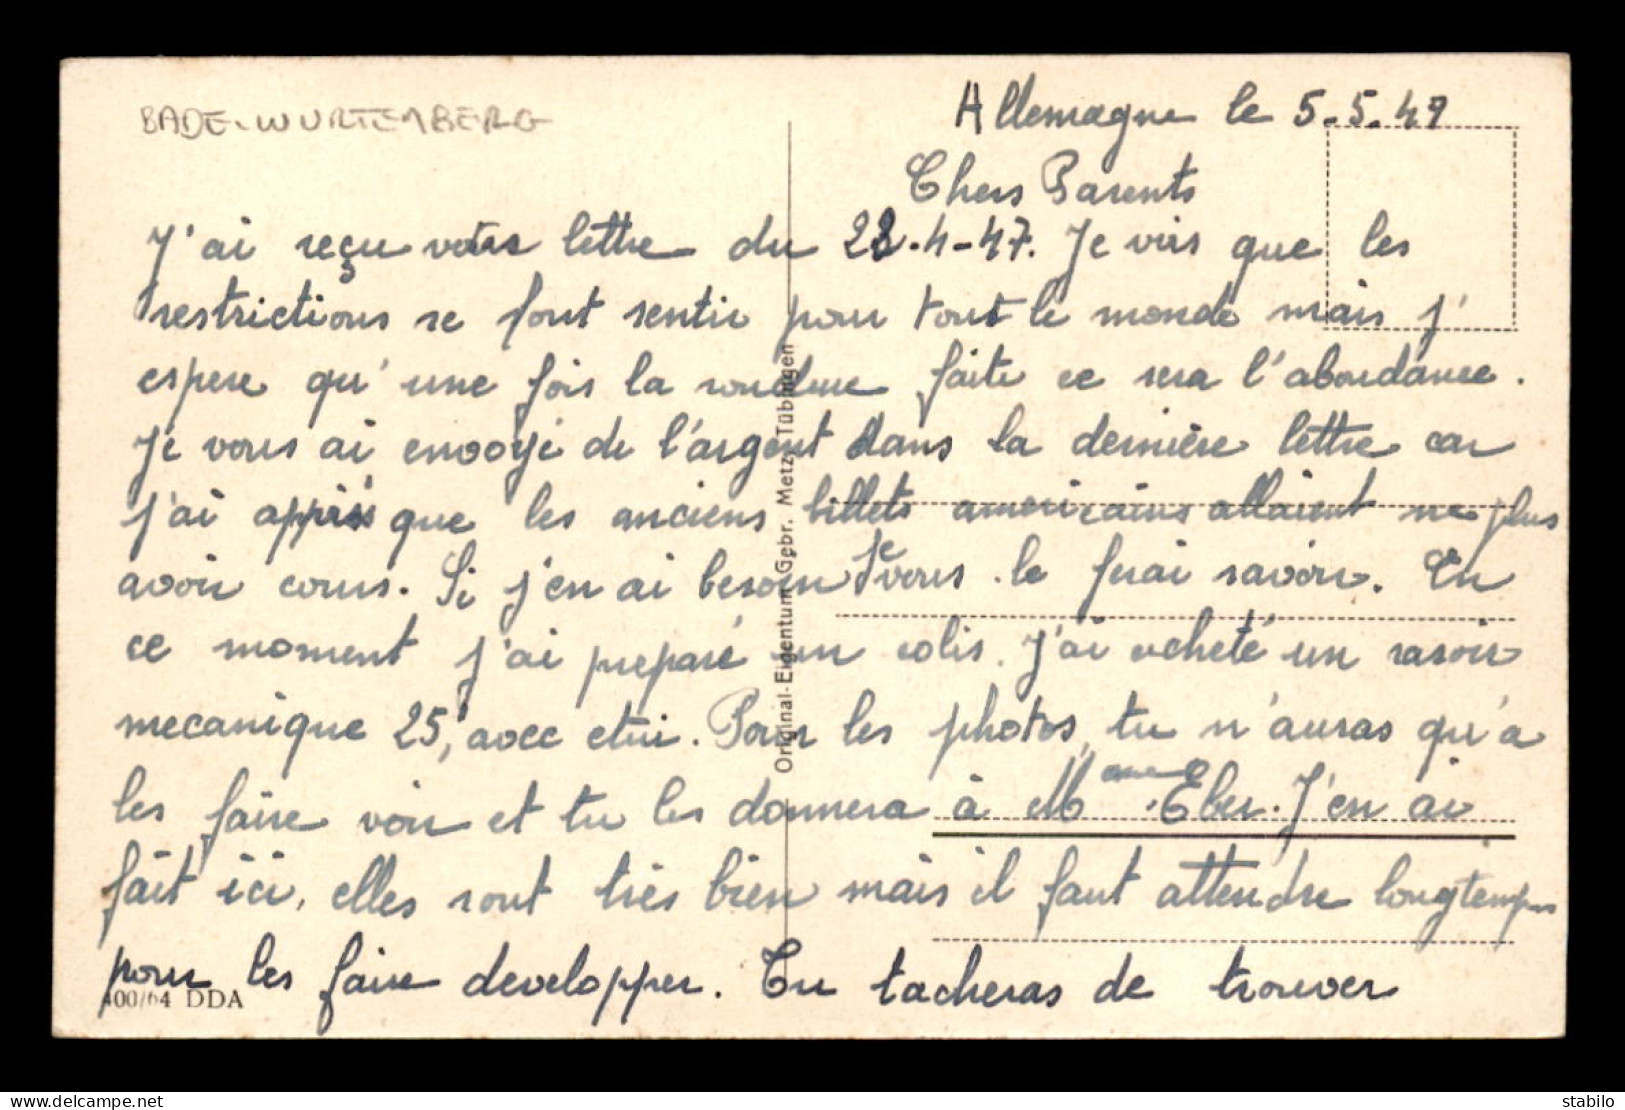 BADE-WURTEMBERG
Allemagne le 5.5.47
Chers Parents
J'ai reçu votre lettre du 22-4-47. Je vois que les
restrictions se font sentir pour tout le monde mais j'
espere qu'une fois la soudure faite ce sera l'abondance.
Je vous ai envoyé de l'argent dans la dernière lettre car
j'ai appris que les anciens billets americains allaient ne plus
avoir cours. Si j'en ai besoin je vous le ferai savoir. En
ce moment j'ai preparé un colis. J'ai acheté un rasoir
mecanique 25, avec etui. Pour les photos, tu n'auras qu'a
les faire voir et tu les donnera à Mame Eber. J'en ai
fait ici, elles sont très bien mais il faut attendre longtemps
pour les faire developper. Tu tacheras de trouver
400/64 DDA
Original-Eigentum Gebr. Metz, Tübingen
stabilo